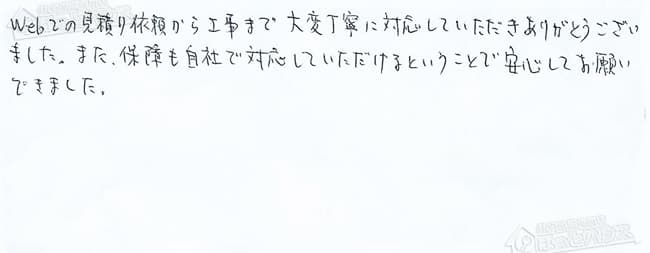 Webでの見積り依頼から工事まで大変丁寧に対応していただきありがとうござい
ました。また、保障も自社で対応していただけるということで安心してお願い
できました。